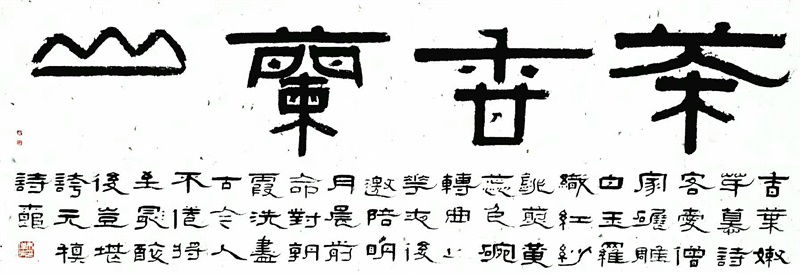 茶香蘭山
香葉嫩
芽慕詩
客愛僧
家碾雕
白玉羅
織紅紗
銚煎黃
蕊色碗
轉曲
花夜後
邀陪明
月晨前
命對朝
霞洗盡
古今人
不倦將
至醉
後豈堪
誇元稹
詩